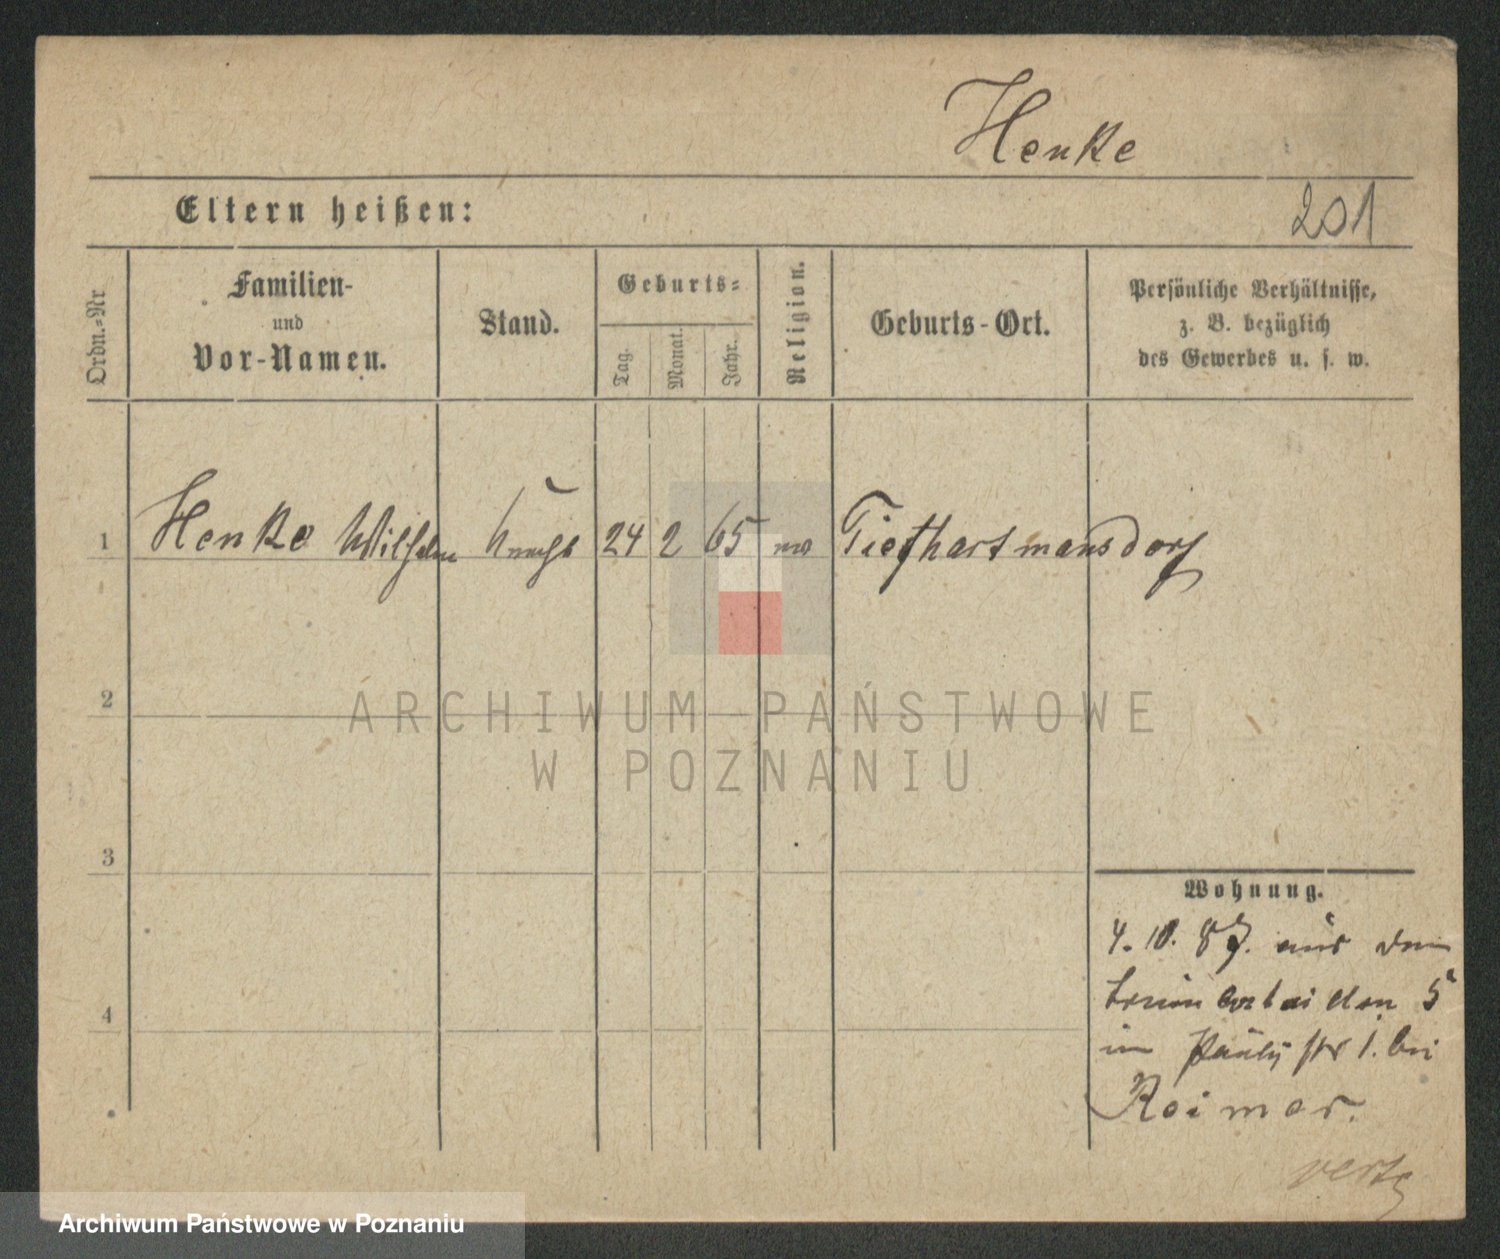 Henke
Eltern heißen:
201
Ordn.-Nr
Familien-
und
Vor-Namen.
Stand.
Geburts-
Tag.
Monat.
Jahr.
Religion.
Geburts-Ort.
Persönliche Verhältnisse,
z. B. bezüglich
des Gewerbes u. s. w.
1 Henke Wilhelm Knecht 24 2 65 Tiefhartmansdorf
2
3
4
Wohnung.
4. 10. 87. aus dem
den 5
in str 1. bei
Reimer.
verte
ARCHIWUM PAŃSTWOWE
W POZNANIU
Archiwum Państwowe w Poznaniu